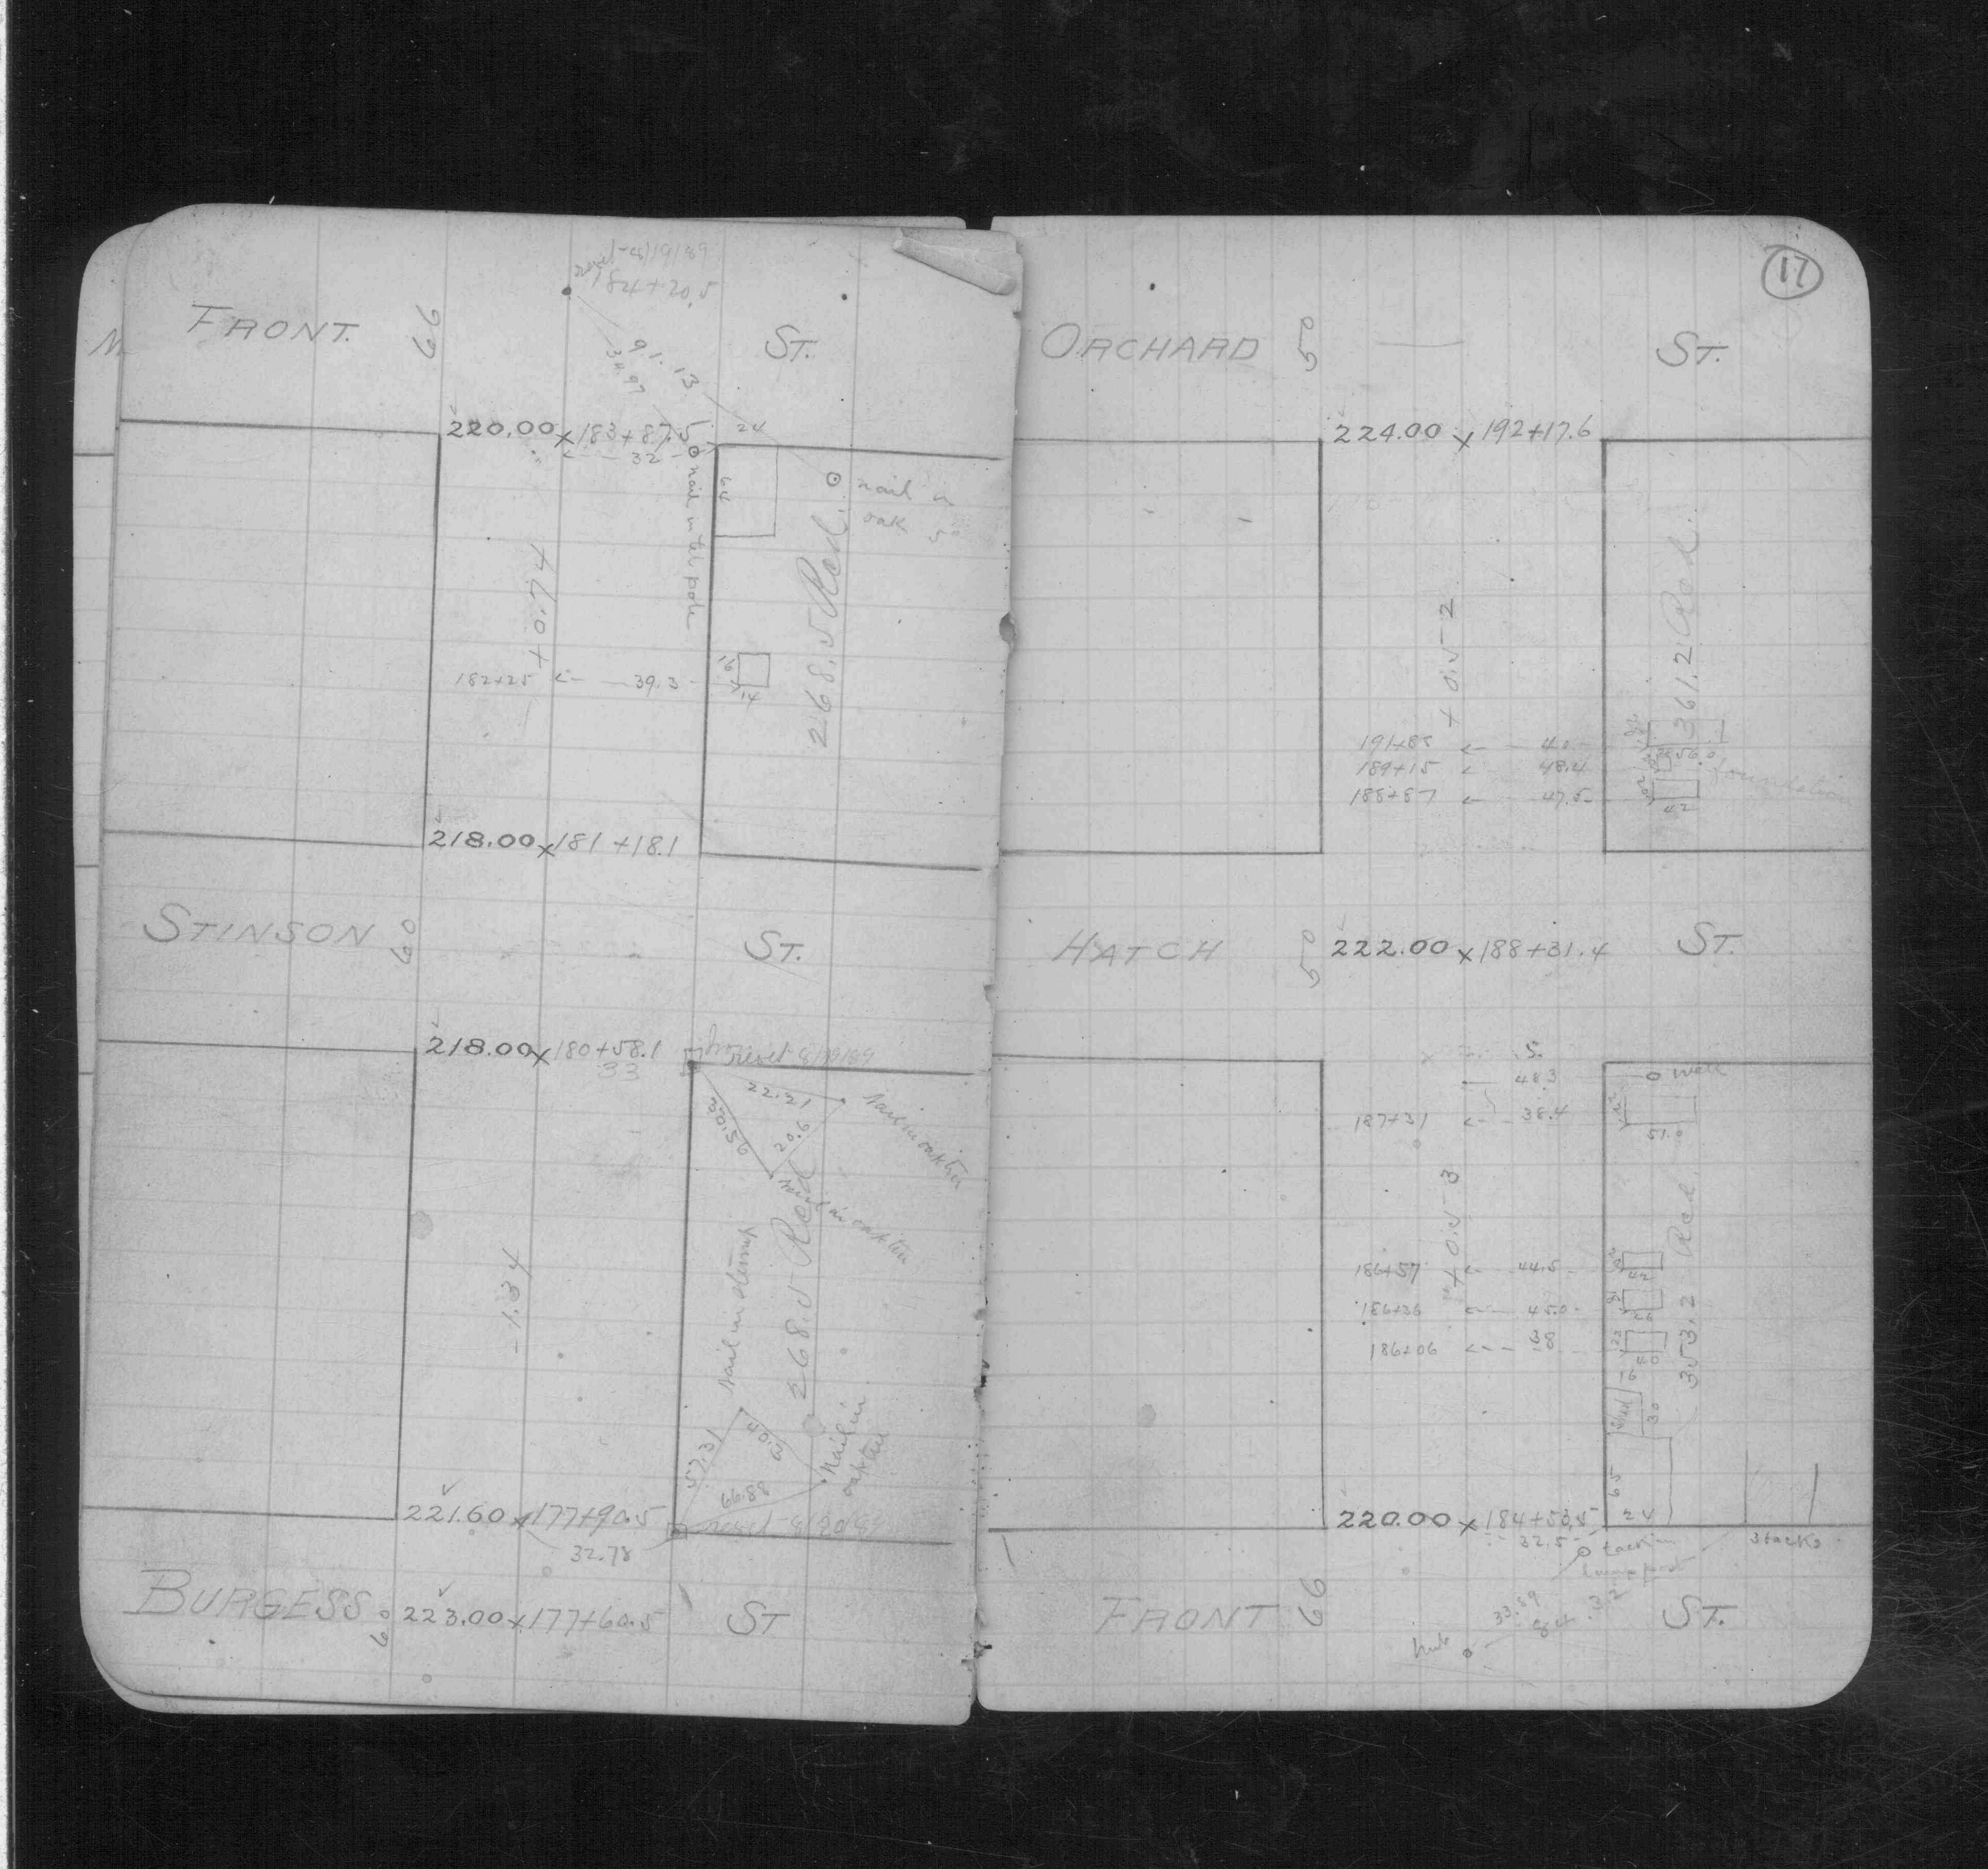 M
reset-8/19/89
184+20.5
FRONT. 66 ST.
91.13
34.97
220.00 x 183+87.5
24
32
64
nail in tel pole
nail in
oak
+0.74
268.5 Rod.
182+25 39.3
16
14
218.00 x 181+18.1
STINSON 60 ST.
218.00 x 180+58.1
33
reset 8/19/89
22.21
nail in oak tree
20.6
nail in oak tree
-1.34
nail in stump
268.5 Rod
57.31
66.88
nail in
oak tree
221.60 x 177+90.5
reset-8/20/89
32.78
BURGESS 60 223.00 x 177+60.5 ST
17
ORCHARD 50 ST.
224.00 x 192+17.6
+0.52
361.2 Rod.
191+85 40
56.0
189+15 48.4
foundation
188+87 47.5
42
HATCH 50 222.00 x 188+31.4 ST.
48.3
well
187+31 38.4
51.0
+0.53
353.2 Rod.
186+57 44.5
42
186+36 45.0
186+06 38
22
40
Shed
30
65
24
220.00 x 184+53.5
32.5
tack in
lamp post
stacks
FRONT 66 ST.
33.89
84.32
hub